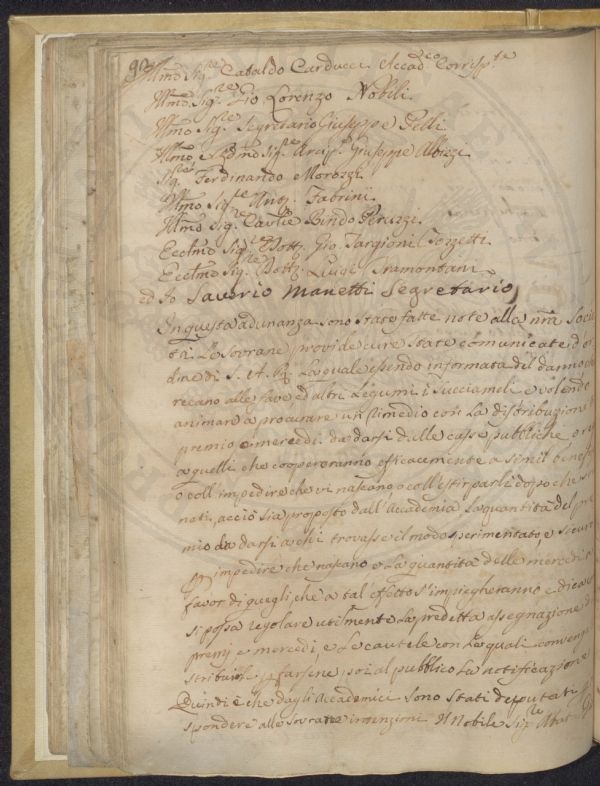 92
Illmo Sigre Cataldo Carducci Accadco Corrispte
Illmo Sigre Gio Lorenzo Nobili
Illmo Sigre Segretario Giuseppe Pelli
Illmo e Rdmo Sigre Arcip Giuseppe Albizzi
Sigre Ferdinando Morozzi
Illmo Sigre Ang. Fabrini
Illmo Sigre Cavlre Bindo Peruzzi
Ecclmo Sigre Dottr Gio Targioni Tozzetti
Ecclmo Sigre Dottr Luigi Tramontani
ed Io Saverio Manetti Segretario
In questa adunanza sono state fatte note alla nra Socie
tà Le Sovrane provide cure state comunicate d'or
dine di S. A. R. La quale essendo informata del danno che
recano alle fave ed altri Legumi i Succiameli e volendo
animare a procurare un rimedio con La distribuzione
premio o mercedi da darsi dalle casse pubbliche o
a quelli che coopereranno efficacemente a simil benefi
o coll'impedire che vi nascano o coll'estirparli dopo che
nati, acciò sia proposto dall'Accademia La quantità del pre
mio da darsi a chi trovasse il modo sperimentato, e sicuro
p impedire che nascano e La quantità delle mercedi
favor di quegli, che a tal'effetto s'impiegheranno e dica
si possa regolare utilmente La predetta assegnazione di
premj e mercedi, e Le cautele con Le quali convenga
stribuirle p farsene poi al pubblico La notificazione
Quindi è che dagli Accademici sono stati deputati
spondere alle sovrane intenzioni Il Nobile Sigre Abat